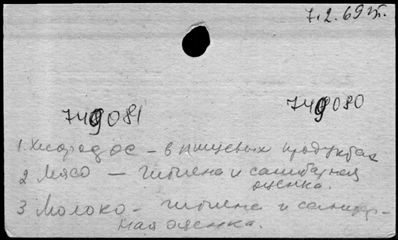 7.2.69г.
749080
749081
1. Хлорофос – в пищевых продуктах
2 Мясо – гигиена и санитарная
оценка.
3 Молоко – гигиена и санитар-
ная оценка.